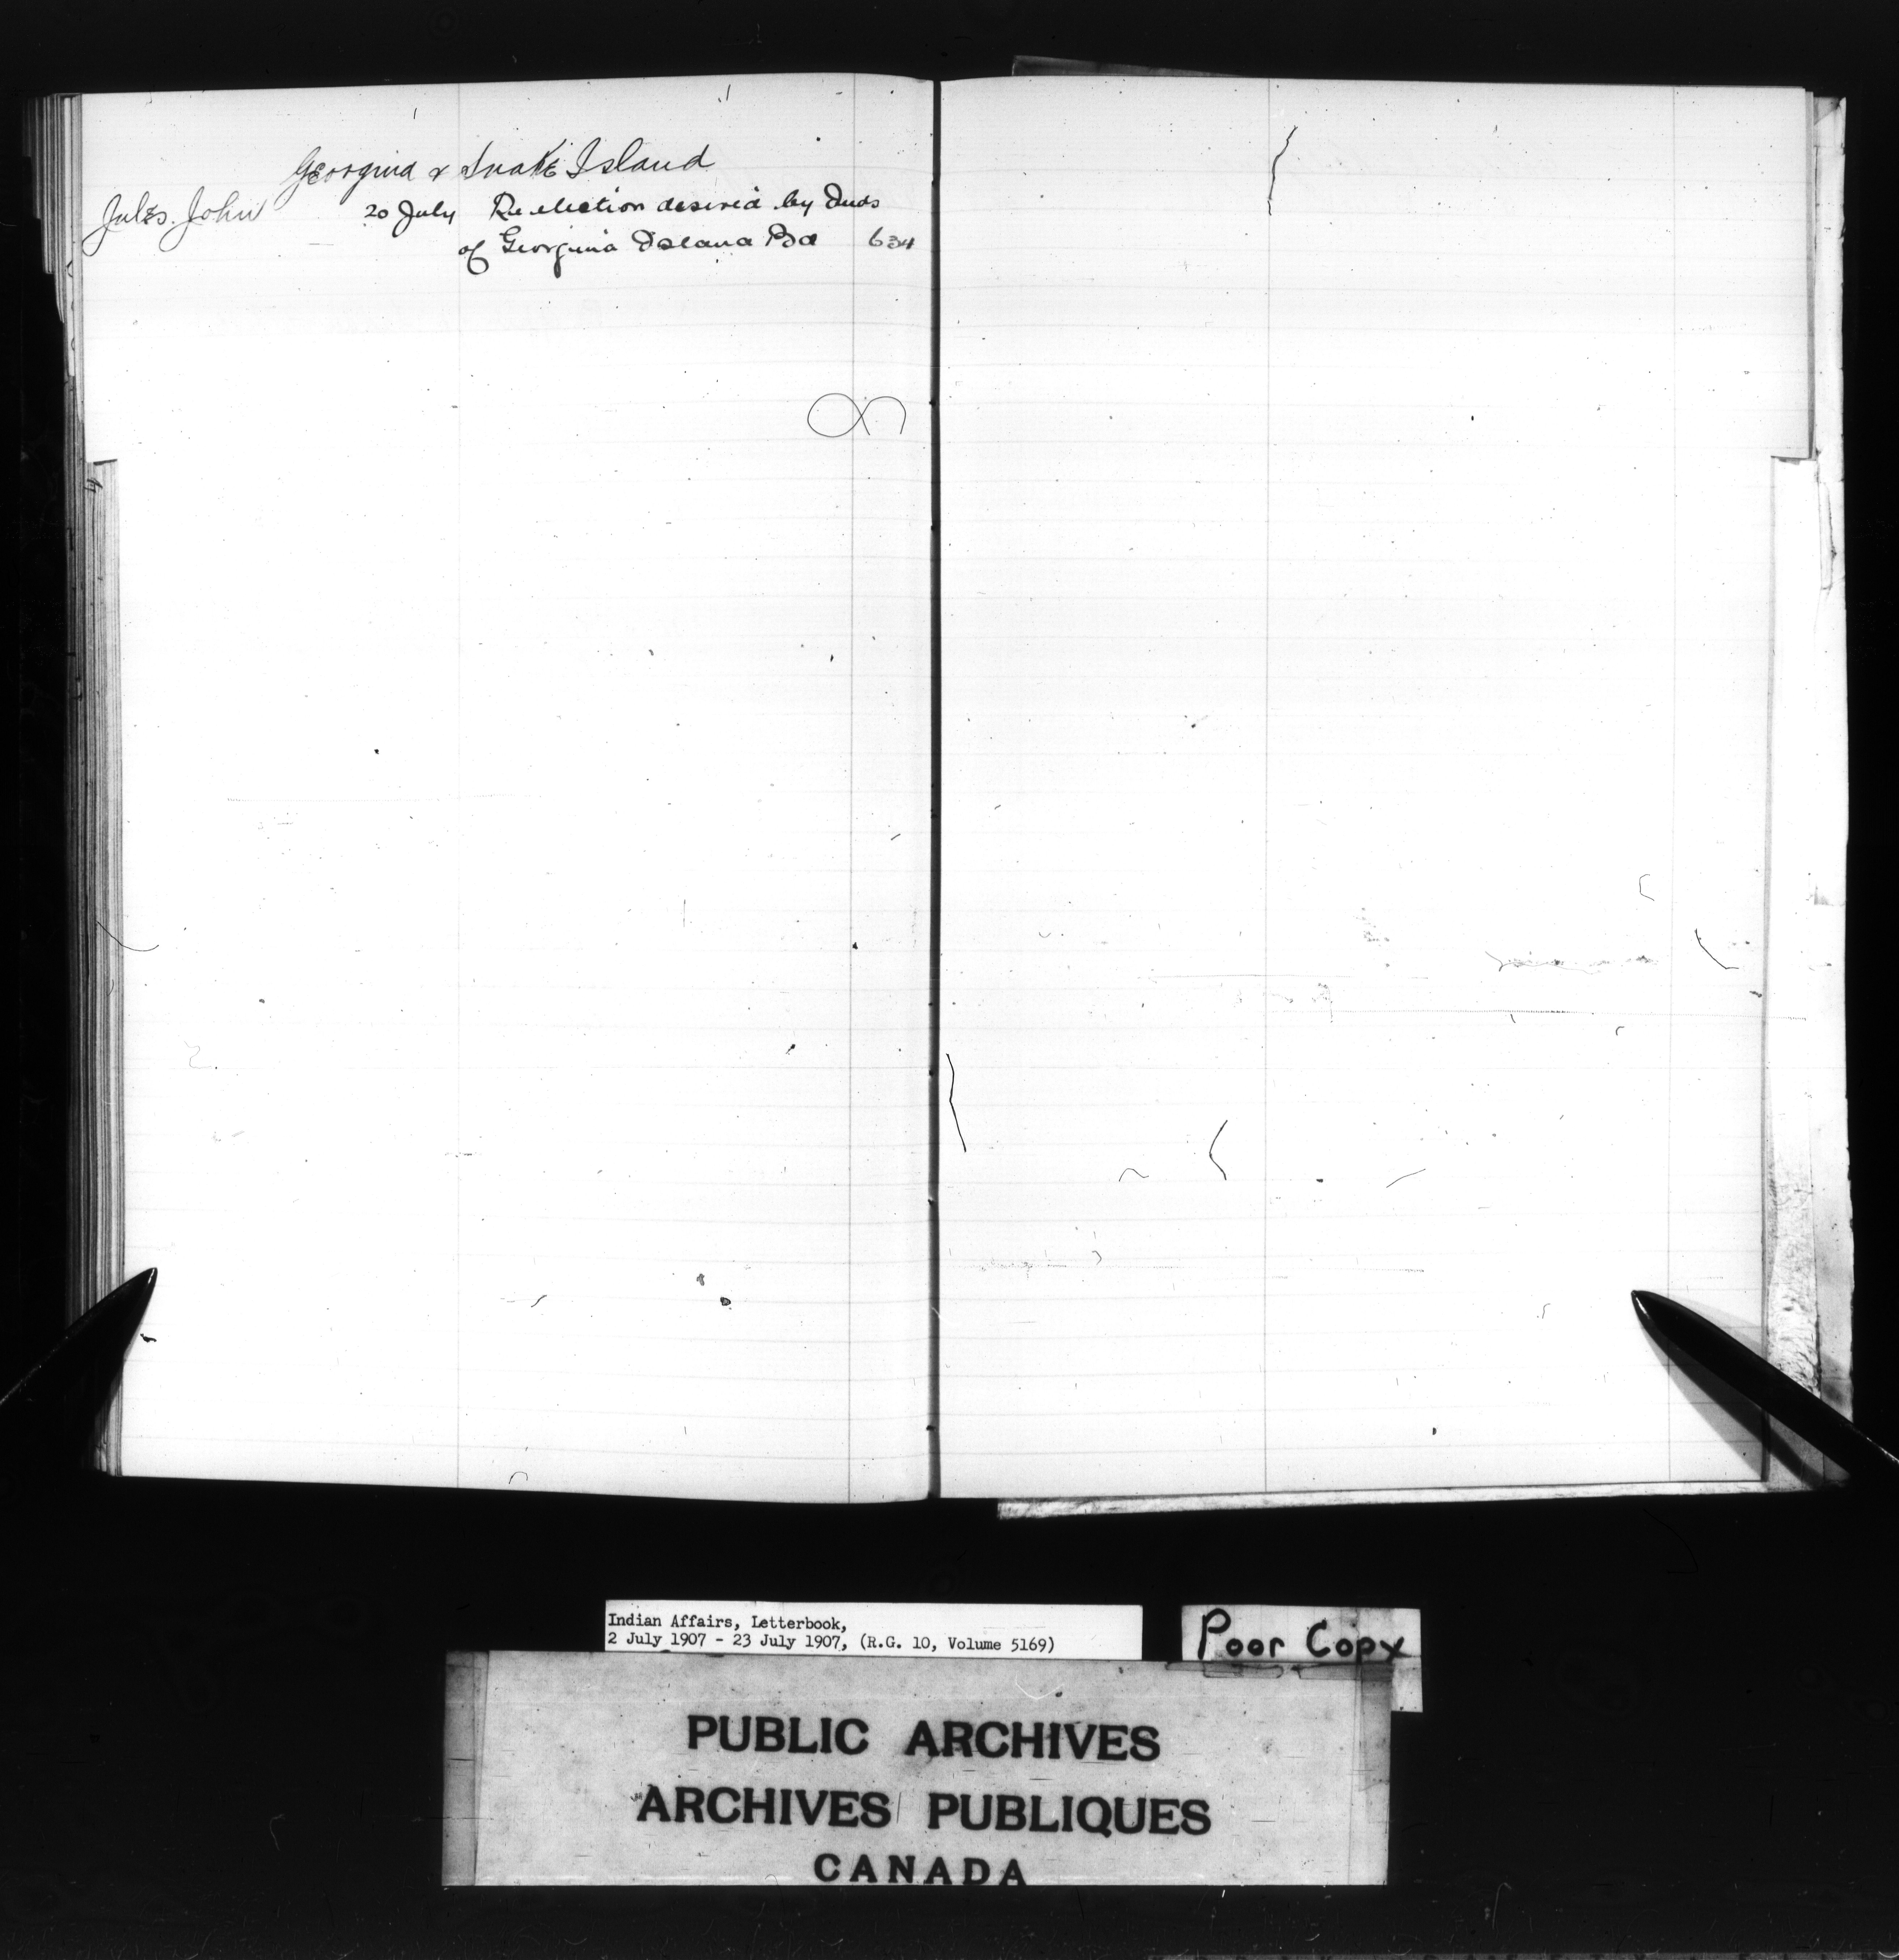 Georgina & Snake Island
Jules. John 20 July Re election desired by Inds
of Georgina Island Bd 634
Indian Affairs, Letterbook,
2 July 1907 - 23 July 1907, (R.G. 10, Volume 5169)
Poor Copy
PUBLIC ARCHIVES
ARCHIVES PUBLIQUES
CANADA